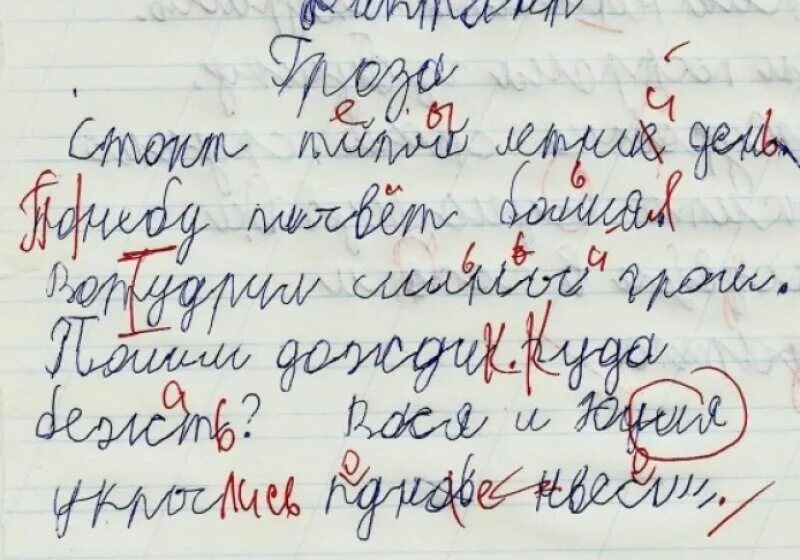 Диктант
Гроза
Стоит типлы летний день
По небу плывёт большая
Вот ударил сильный гром.
Пошли дождик. Куда
бежать? Вася и Юния
укрылись под навесом.